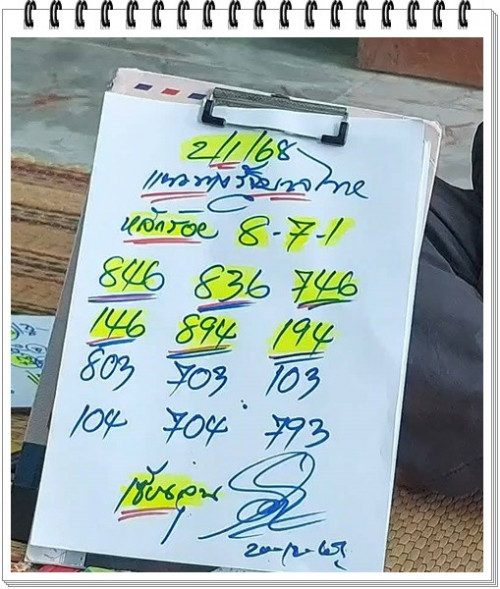 2/1/68
แนวทางรัฐบาลไทย
หลักร้อย 8-7-1
846 836 746
146 894 194
803 703 103
104 704 793